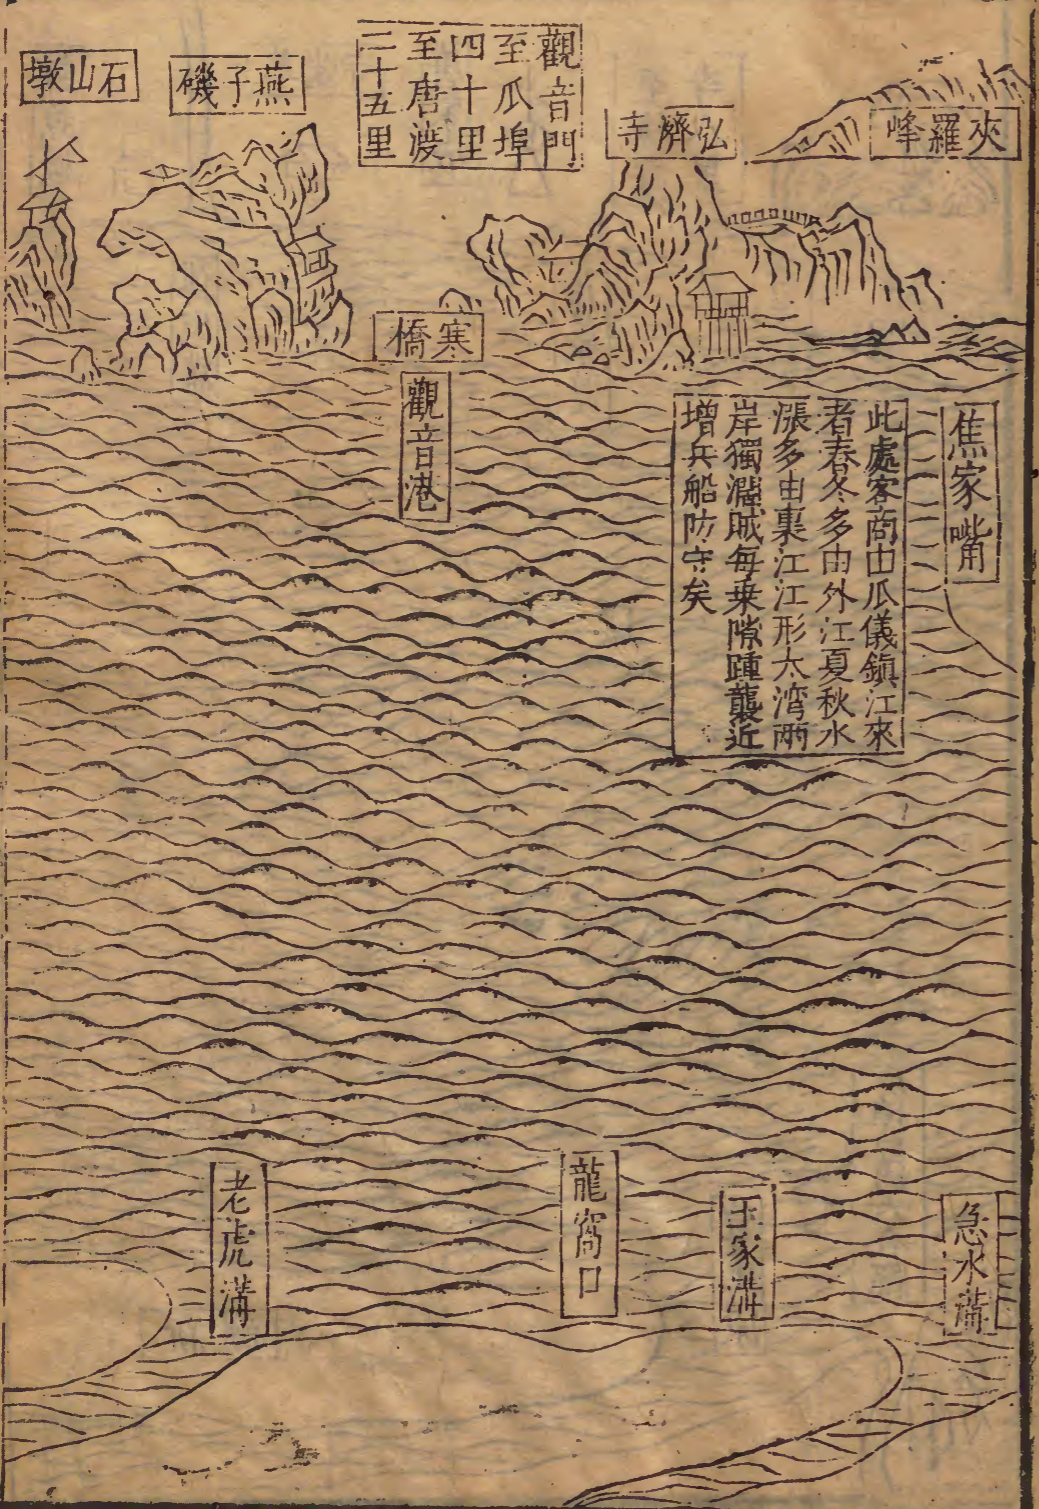 夾羅峰
弘濟寺
觀音門
至瓜埠
四十里
至唐渡
二十五里
燕子磯
石山墩
寒橋
觀音港
焦家嘴
此處客商由瓜儀鎮江來
者春冬多由外江夏秋水
漲多由裏江江形大灣兩
岸獨濶賊每乗隙踵襲近
增兵船防守矣
急水溝
王家溝
龍窩口
老虎溝